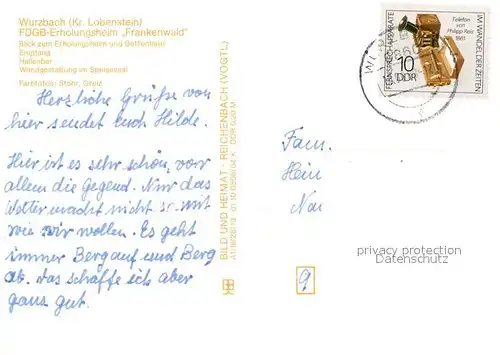 Wurzbach (Kr. Lobenstein)
FDGB-Erholungsheim „Frankenwald"
Blick zum Erholungsheim und Bettenhaus
Eingang
Hallenbar
Wandgestaltung im Speisesaal
Farbfotos: Stöhr, Greiz
Herzliche Grüße von
hier sendet euch Hilde.
Hier ist es sehr schön, vor
allem die Gegend. Nur das
Wetter macht nicht so mit
wie wir wollen. Es geht
immer Bergauf und Berg
ab. das schaffe ich aber
ganz gut.
BILD UND HEIMAT · REICHENBACH (VOGTL)
Telefon
von
Philipp Reis
1861
IM WANDEL DER ZEITEN
FERNSPRECHAPPARATE
10
DDR
Fam.
Hein
privacy protection
Datenschutz
9